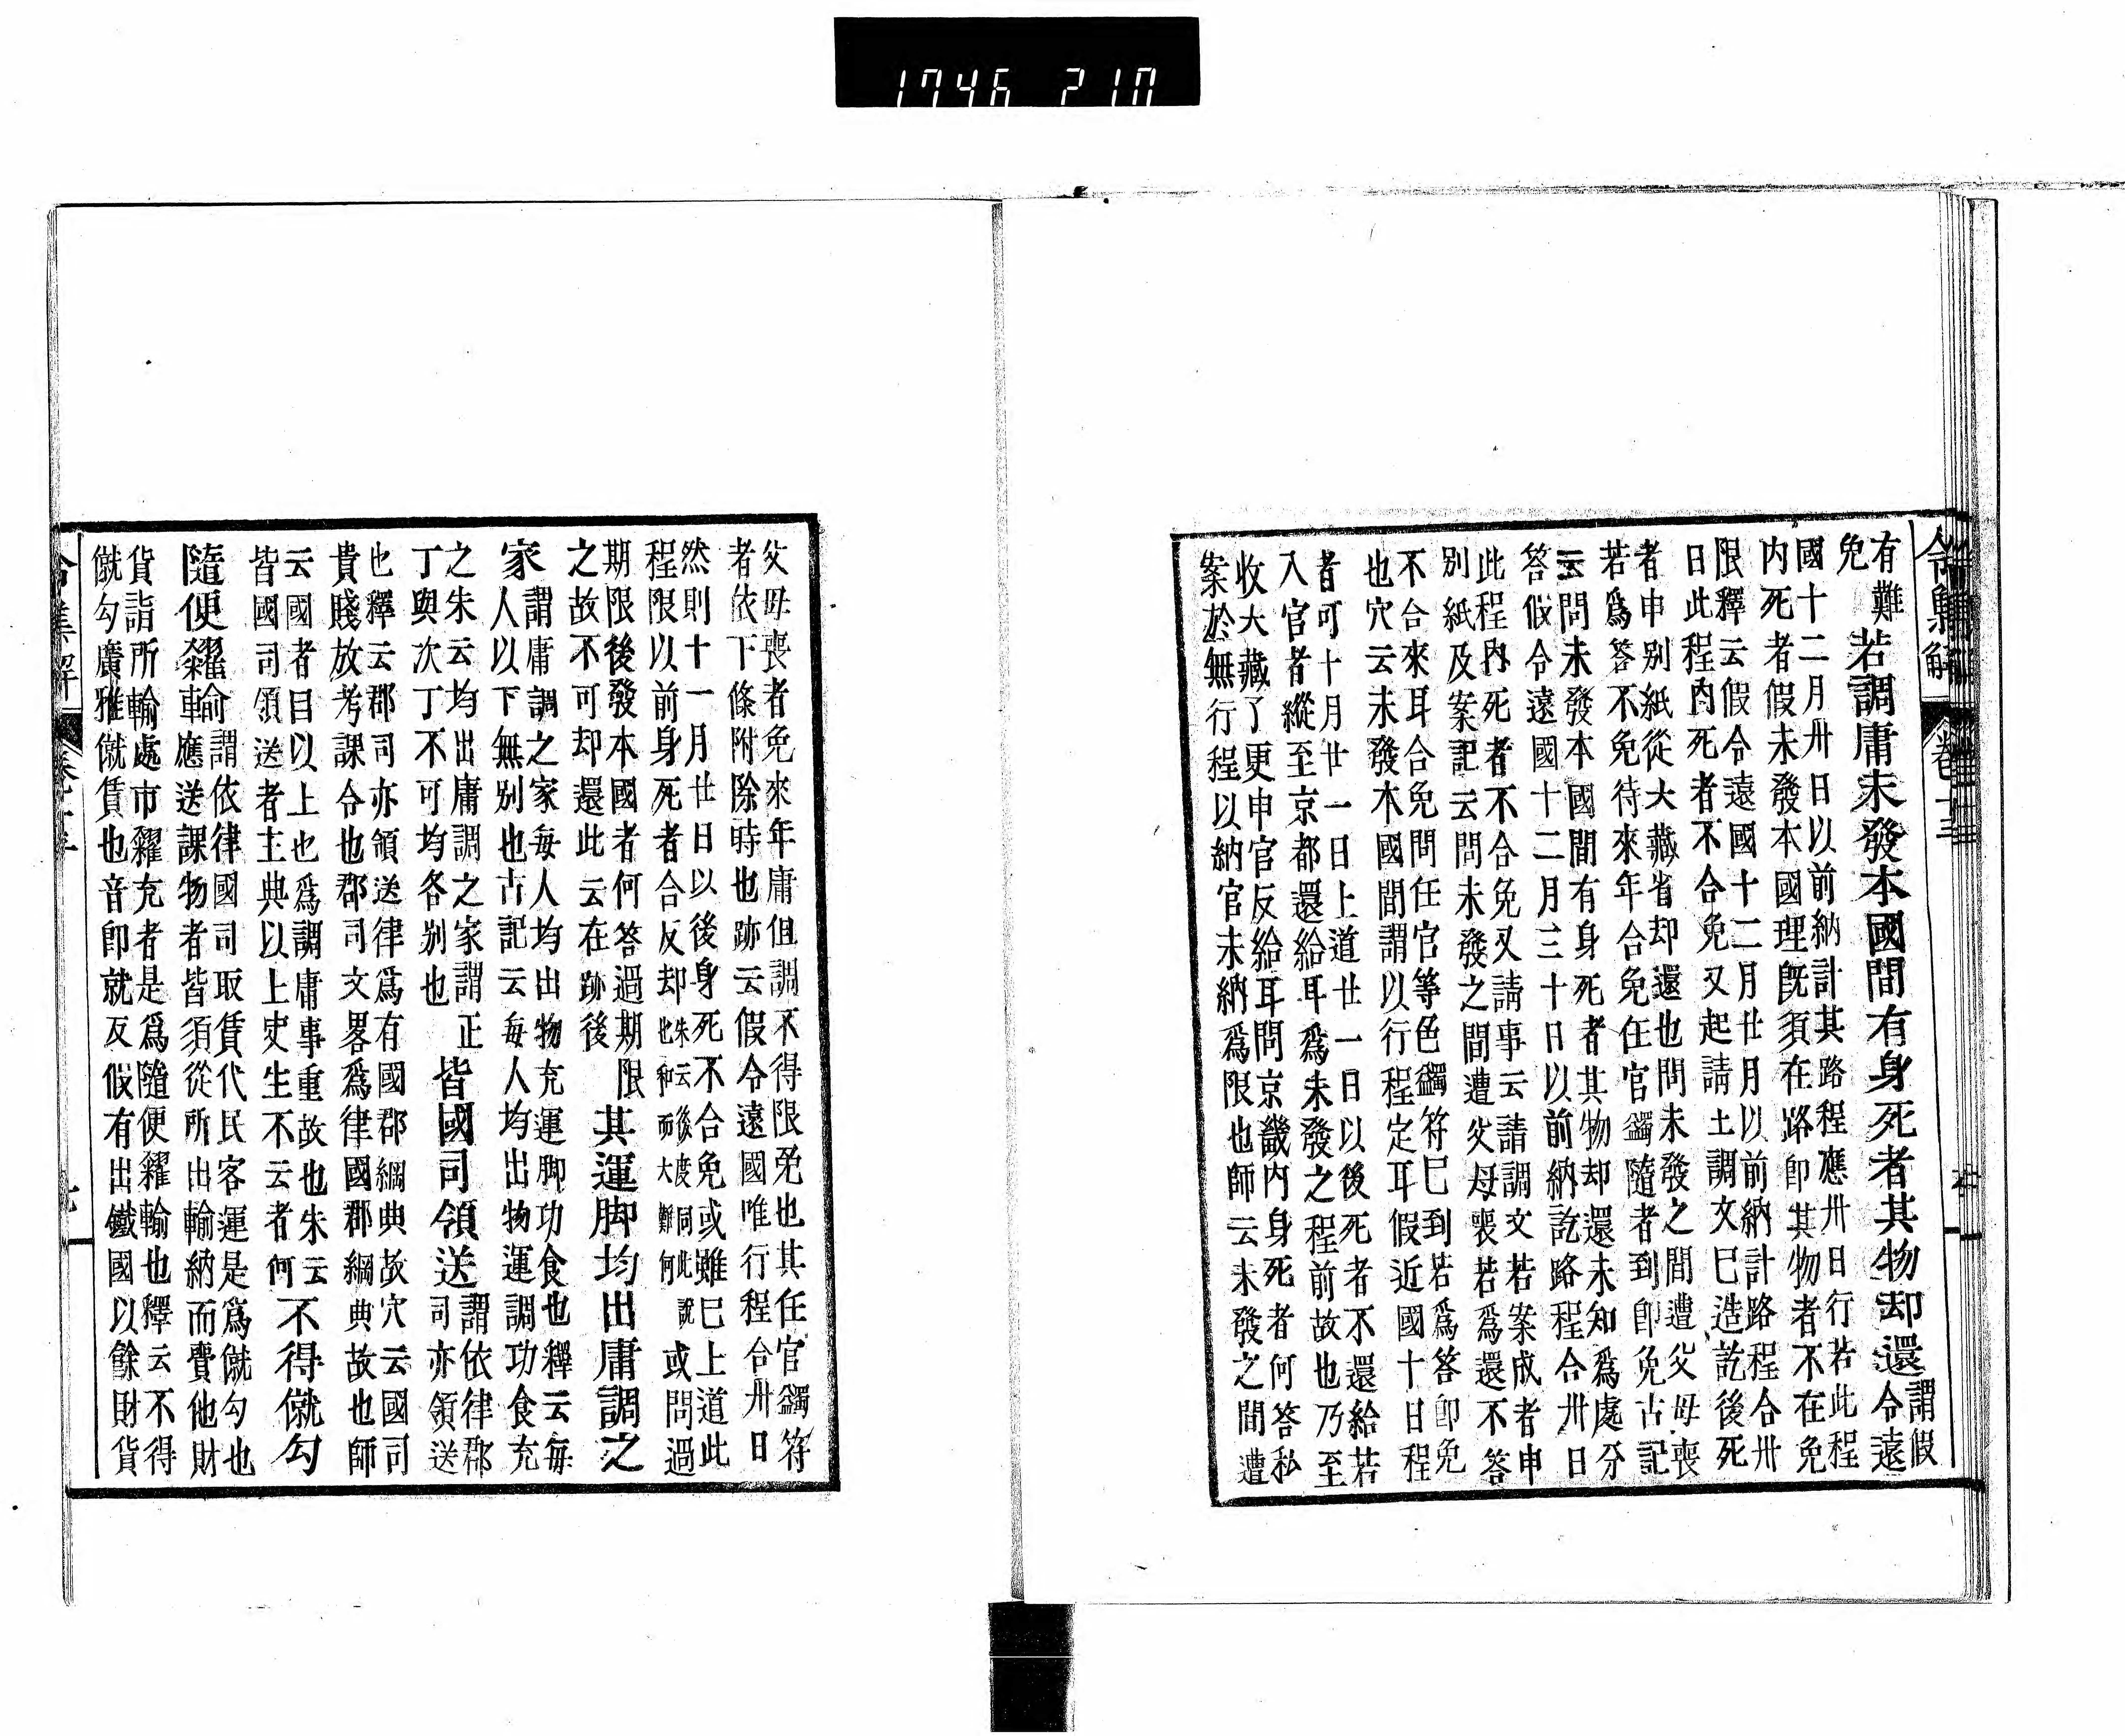 1746 210
令集解 卷十三
有難
免
若調庸未發本國間有身死者其物却還
謂假
令遠
國十二月卅日以前納計其路程應卅日行若此程
内死者假未發本國理既須在路即其物者不在免
限釋云假令遠國十二月廿月以前納計路程合卅
日此程内死者不合免又起請土調文已造訖後死
者申別紙從大藏省却還也問未發之間遭父母喪
若爲答不免待來年合免任官蠲隨者到即免古記
云問未發本國間有身死者其物却還未知爲處分
答假令遠國十二月三十日以前納訖路程合卅日
此程内死者不合免又請事云請調文若案成者申
別紙及案記云問未發之間遭父母喪若爲還不答
不合來耳合免問任官等色蠲符已到若爲答即免
也穴云未發本國間謂以行程定耳假近國十日程
者可十月廿一日上道廿一日以後死者不還給若
入官者縱至京都還給耳爲未發之程前故也乃至
收大藏了更申官反給耳問京畿内身死者何答私
案於無行程以納官未納爲限也師云未發之間遭
父母喪者免來年庸但調不得限免也其任官蠲符
者依下條附除時也跡云假令遠國唯行程合卅日
然則十一月廿日以後身死不合免或雖已上道此
程限以前身死者合反却
朱云後度同此說
也和而大難何
或問過
期限後發本國者何答過期限
之故不可却還此云在跡後
其運脚均出庸調之
家
謂庸調之家每人均出物充運脚功食也釋云每
人以下無別也古記云每人均出物運調功食充
之朱云均出庸調之家謂正
丁與次丁不可均各別也
皆國司領送
謂依律郡
司亦領送
也釋云郡司亦領送律爲有國郡綱典故穴云國司
貴賤放考課令也郡司文畧爲律國郡綱典故也師
云國者目以上也爲調庸事重故也朱云
皆國司領送者主典以上史生不云者何
不得僦勾
隨便糴輸
謂依律國司取賃代民客運是爲僦勾也
車應送課物者皆須從所出輸納而費他財
貨詣所輸處市糴充者是爲隨便糴輸也釋云不得
僦勾廣雅僦賃也音即就反假有出鐵國以餘財貨